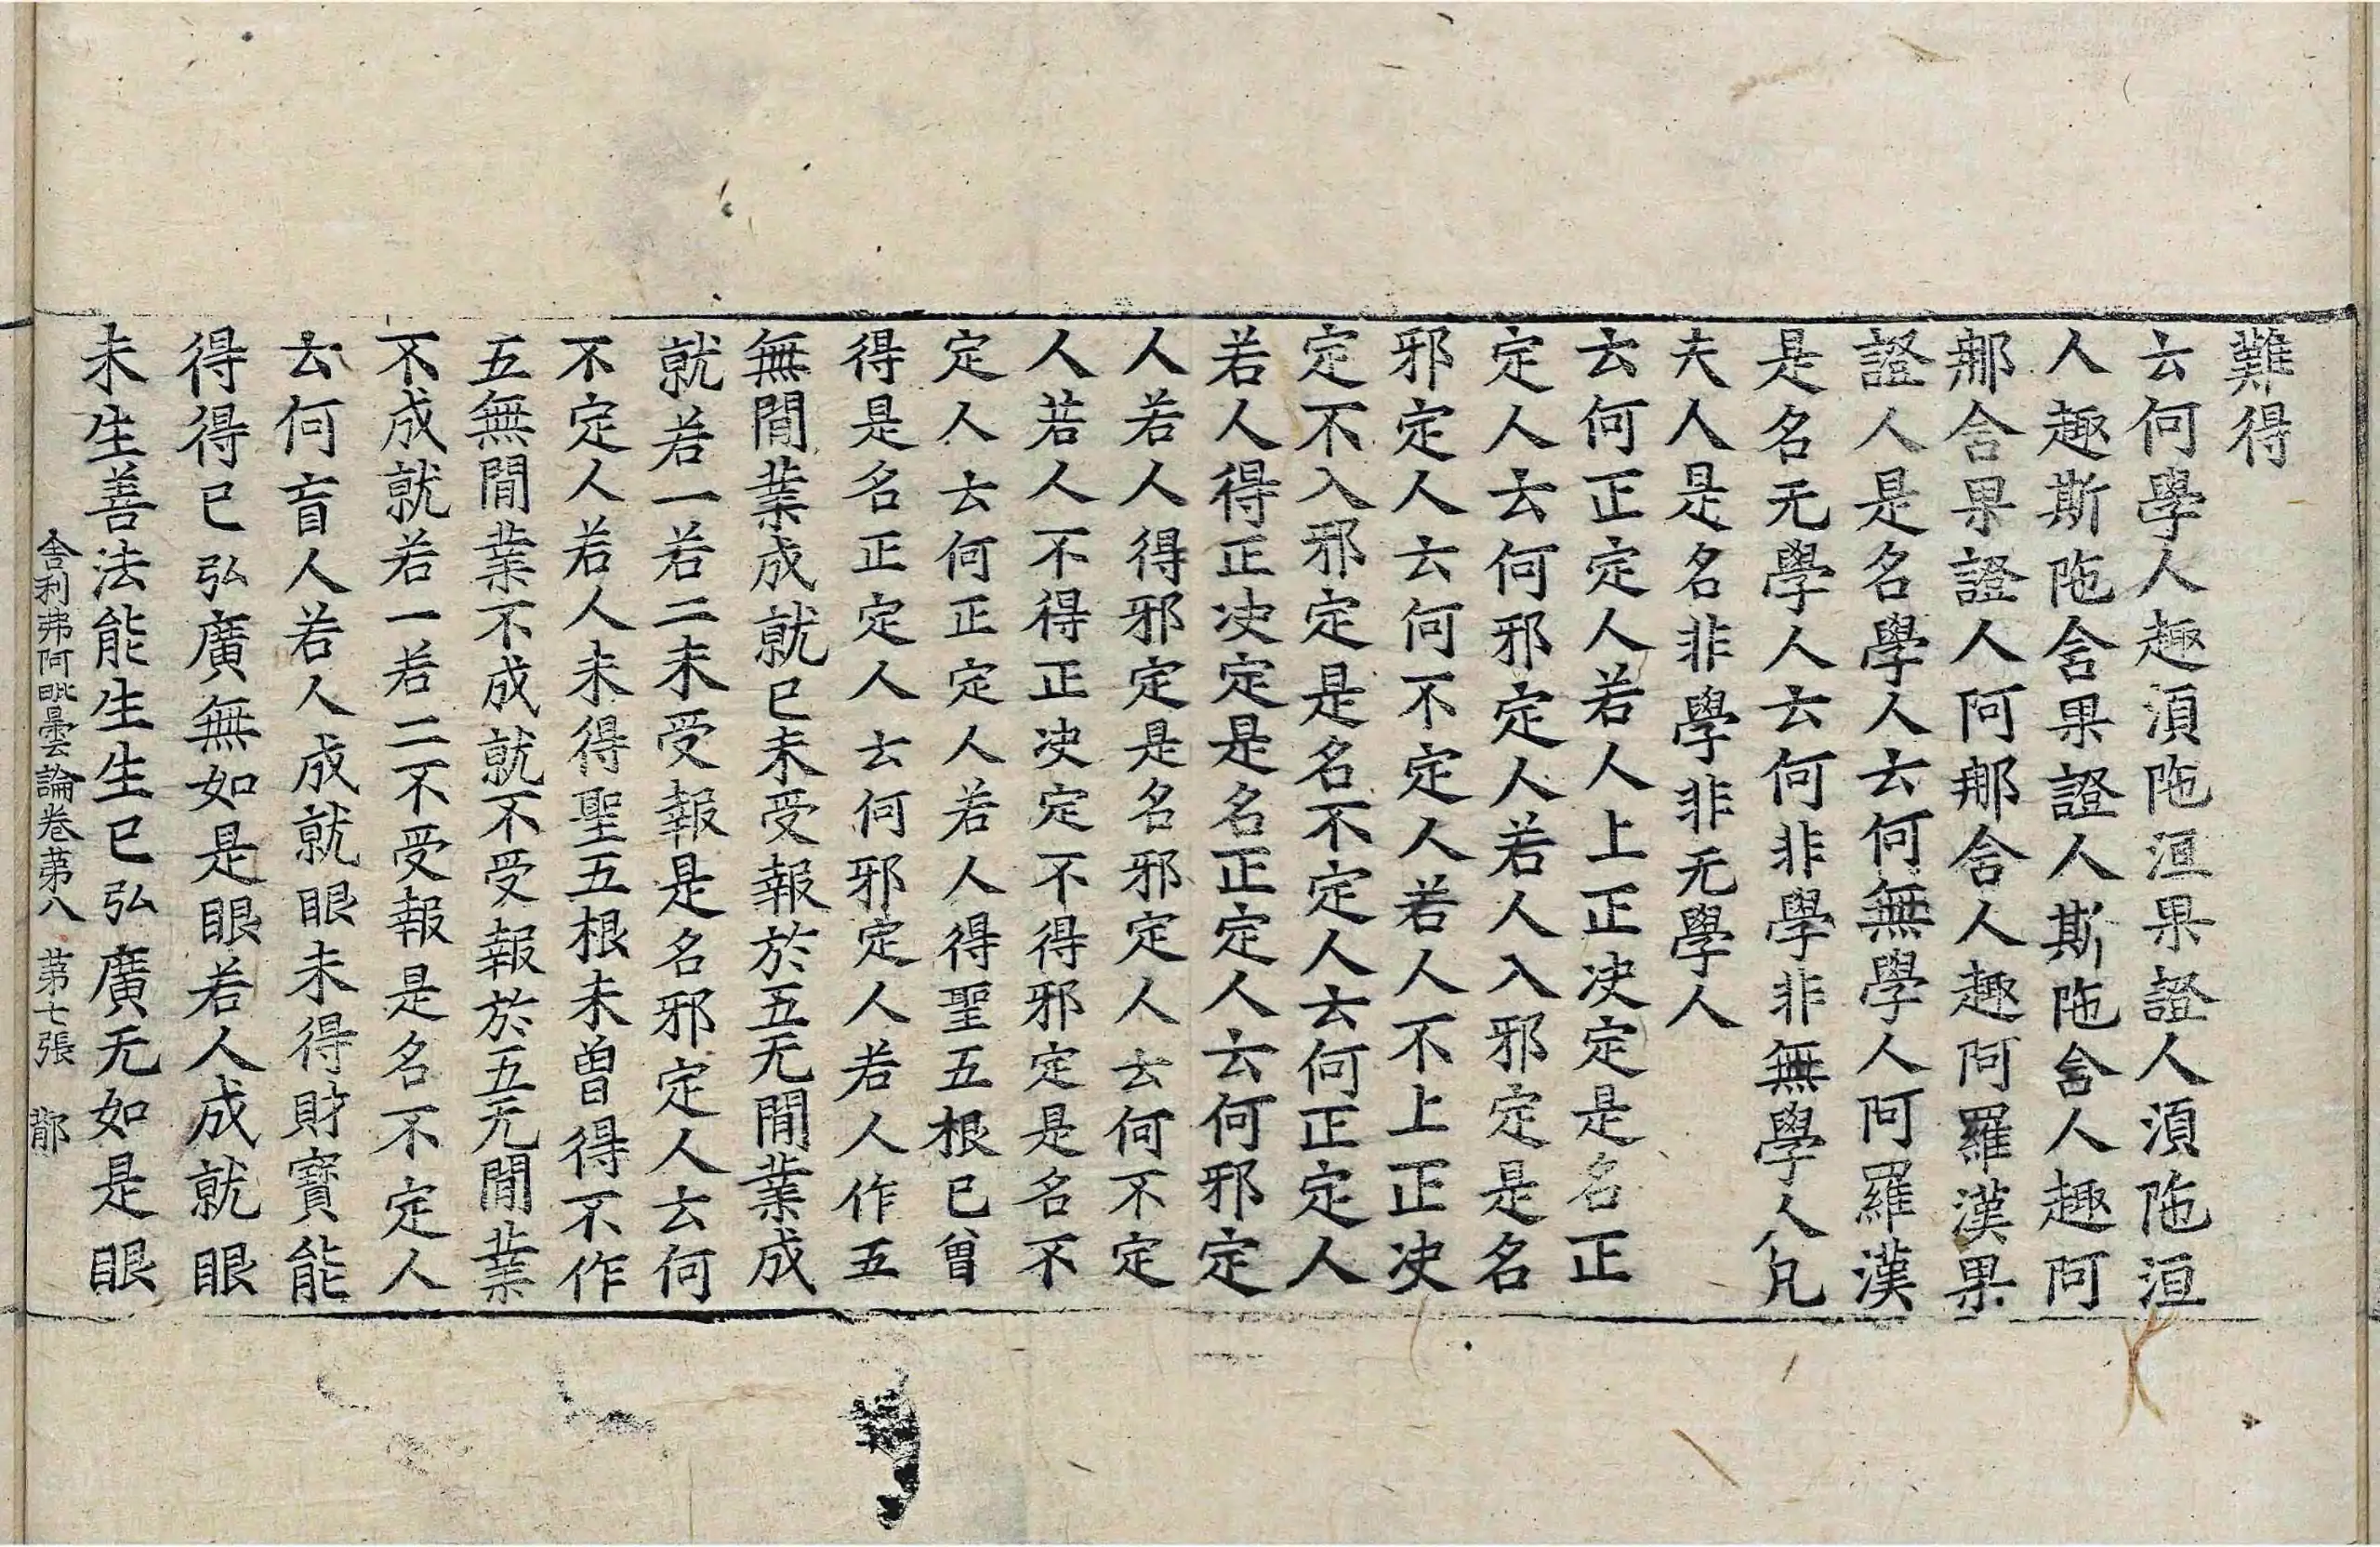 難得
云何學人趣湏陁洹果證人湏陁洹
人趣斯陁含果證人斯陁含人趣阿
那含果證人阿那含人趣阿羅漢果
證人是名學人云何無學人阿羅漢
是名无學人云何非學非無學人凡
夫人是名非學非无學人
云何正定人若人上正决定是名正
定人云何邪定人若人入邪定是名
邪定人云何不定人若人不上正决
定不入邪定是名不定人云何正定人
若人得正决定是名正定人云何邪定
人若人得邪定是名邪定人云何不定
人若人不得正决定不得邪定是名不
定人云何正定人若人得聖五根已曾
得是名正定人云何邪定人若人作五
無間業成就已未受報於五无間業成
就若一若二未受報是名邪定人云何
不定人若人未得聖五根未曾得不作
五無間業不成就不受報於五无間業
不成就若一若二不受報是名不定人
云何盲人若人成就眼未得財寶能
得得已弘廣無如是眼若人成就眼
未生善法能生生已弘廣无如是眼
舍利弗阿毗曇論卷第八 第七張 㡣